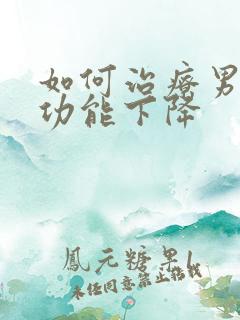 如何治疗男
功能下降
鳳元糖果
未经同意禁止搭载